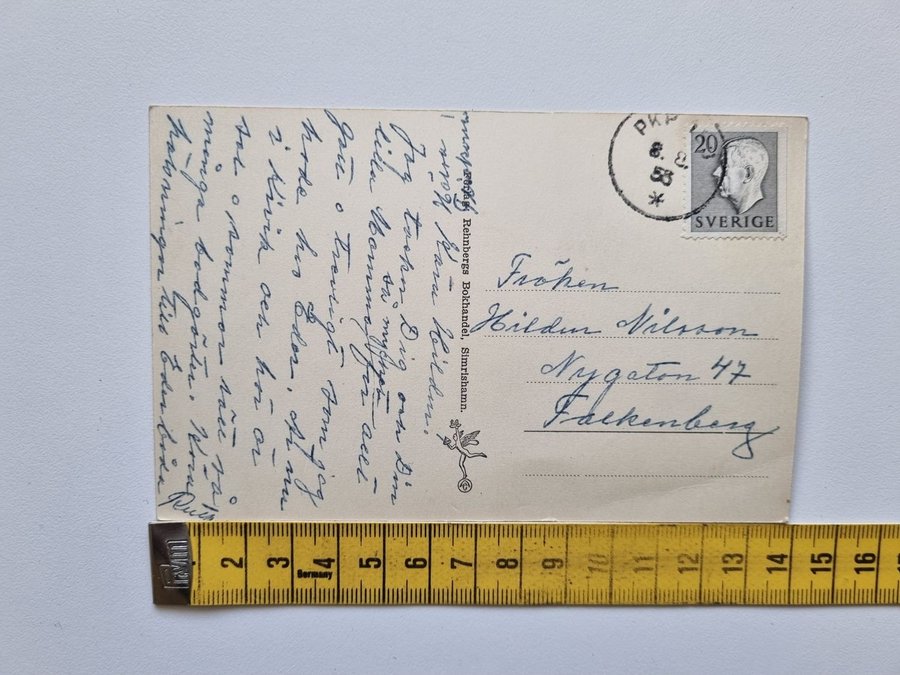 Kära Hildur.
Jag tackar Dig och Din
så mycket
lilla Mamma för allt
gott o trevligt som jag
hade hos Eder. Är nu
i Kivik och här är
sol o sommar så
många badgäster.
hälsningar till Eder båda
Ruth
Förlag: Rehnbergs Bokhandel, Simrishamn.
PKP
8. 8.
58
20
SVERIGE
Fröken
Hildur Nilsson
Nygatan 47
Falkenberg
2 3 4 5 6 7 8 9 10 11 12 13 14 15 16
Germany